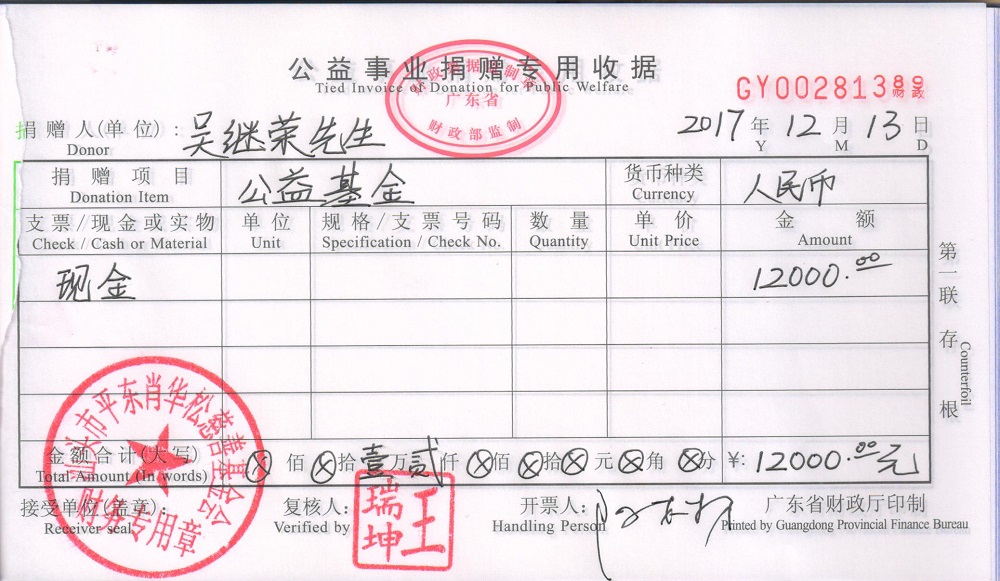 公益事业捐赠专用收据
Tied Invoice of Donation for Public Welfare
财政票据监制章
广东省
财政部监制
GY00281389
财政
捐赠人(单位): 吴继荣先生 2017年12月13日
Donor Y M D
捐赠项目 公益基金 货币种类 人民币
Donation Item Currency
支票/现金或实物 单位 规格/支票号码 数量 单价 金额
Check / Cash or Material Unit Specification / Check No. Quantity Unit Price Amount
现金 12000.00
第一联 存根
Counterfoil
金额合计(大写) ⊗佰⊗拾壹万贰仟⊗佰⊗拾⊗元⊗角⊗分 ¥: 12000.00元
Total Amount (In words)
接受单位(盖章): 复核人: 开票人: 广东省财政厅印制
Receiver seal Verified by Handling Person Printed by Guangdong Provincial Finance Bureau
汕头市平东肖华松慈善基金会
财务专用章
王瑞坤